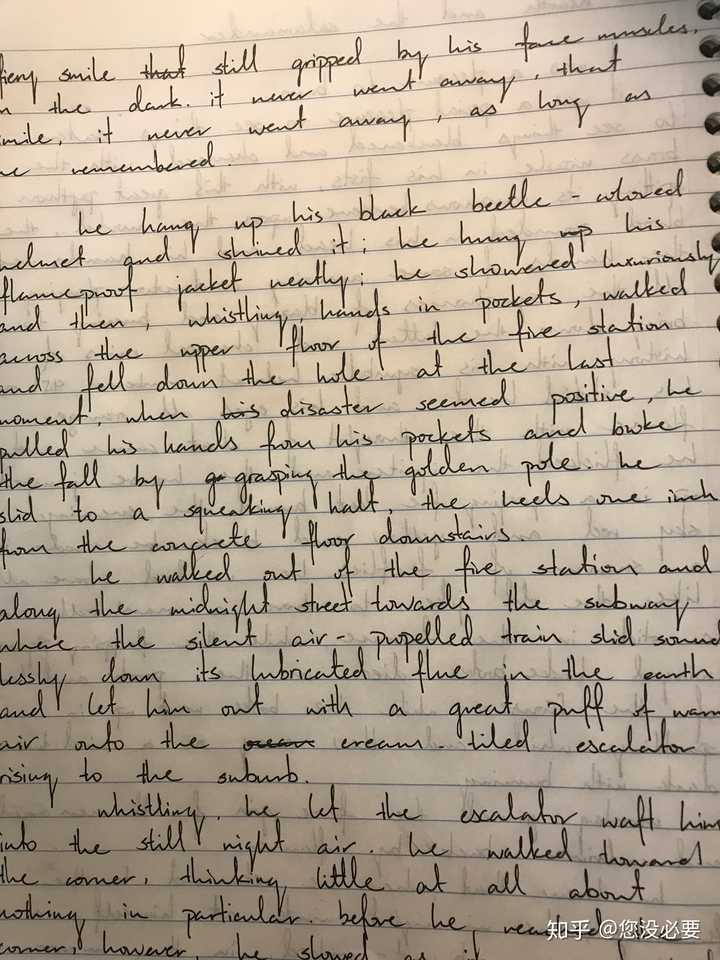 fiery smile that still gripped by his face muscles,
in the dark. it never went away, that
smile, it never went away, as long as
he remembered.
he hang up his black beetle-colored
helmet and shined it; he hung up his
flameproof jacket neatly; he showered luxuriously
and then, whistling, hands in pockets, walked
across the upper floor of the fire station
and fell down the hole. at the last
moment, when his disaster seemed positive, he
pulled his hands from his pockets and broke
the fall by ga grasping the golden pole. he
slid to a squeaking halt, the heels one inch
from the concrete floor downstairs.
he walked out of the fire station and
along the midnight street towards the subway
where the silent air-propelled train slid sound
lessly down its lubricated flue in the earth
and let him out with a great puff of warm
air onto the cream-tiled escalator
rising to the suburb.
whistling, he let the escalator waft him
into the still night air. he walked toward
the corner, thinking little at all about
nothing in particular. before he reached the
corner, however, he slowed as if
知乎 @您没必要